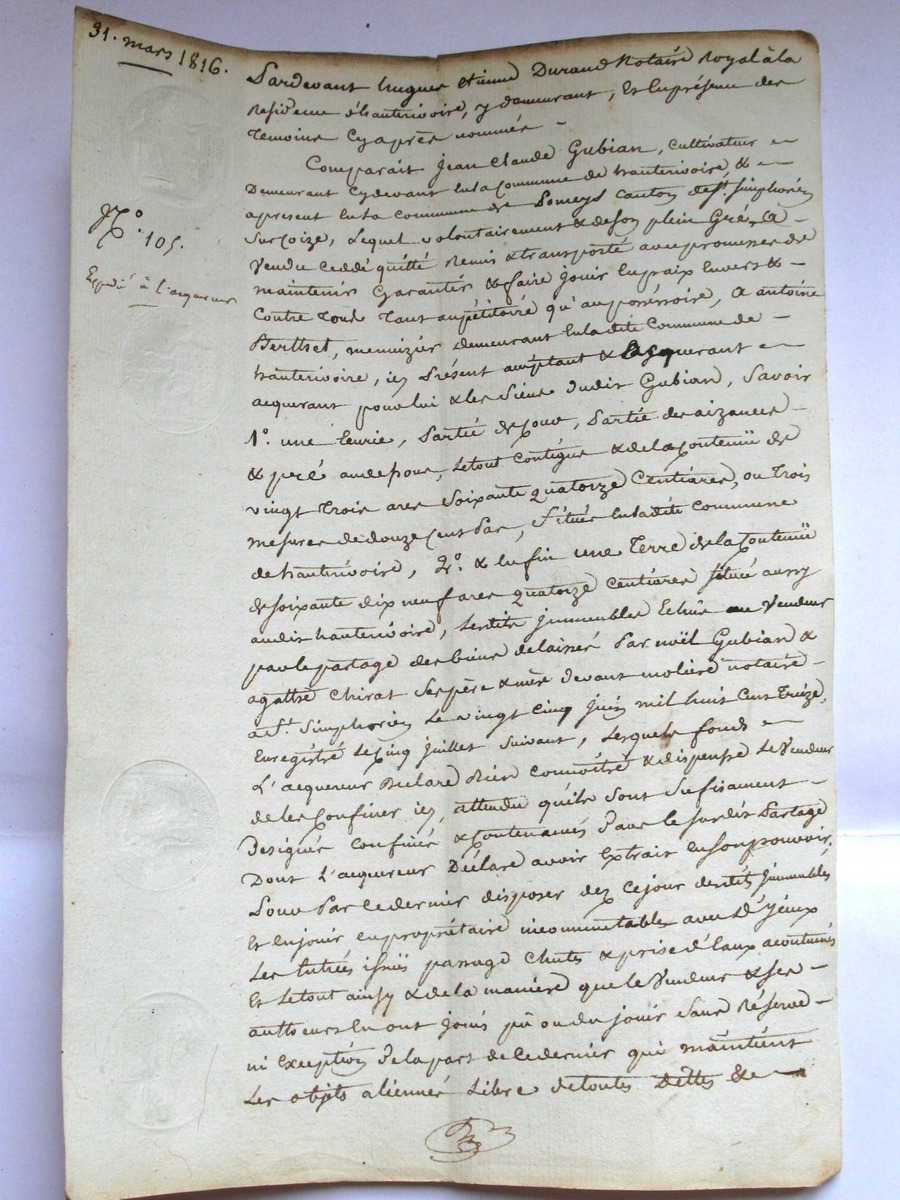 31. mars 1816.
Pardevant hugues etienne Durand Notaire Royal à la
Residence d'hauterivoire, y demeurant, et en présence des
Temoins cy après nommés –
Comparait Jean Claude Gubian, cultivateur
Demeurant cydevant en la Commune de hauterivoire, &
apresent en la commune de Pomeys canton de St. simphorien
sur coize, Lequel volontairement & de son plein Gré, a
Vendu ceddé quitté Remis & transporté avec promesses de
maintenir Garantir & faire jouir en paix Envers &
Contre Tous Tant au pétitoire qu'au possessoire, a antoine
Berthet, menuizier demeurant en la dite Commune de
hauterivoire, icy Présent acceptant & acquerant
acquerant pour lui & les Siens dudit Gubian, Savoir
1º. une , Partie de cour, Partie des aizances
& pré , Le tout contigue & de la contenüe de
vingt trois ares soixante quatorze Centiares, ou trois
mesures de douze cent pas, située en la dite commune
de hauterivoire, 2º. & en fin une Terre de la Contenüe
de soixante dix neuf ares quatorze centiares située aussy
audit hauterivoire, Lesdits immeubles Echus au Vendeur
par le partage des biens délaissés Par noël Gubian &
agathe Chirat ses père & mère devant molière notaire
a St. Simphorien Le vingt cinq juin mil huit Cent Treize,
Enregistré le cinq juillet suivant, Lesquels fonds
L'acquereur Declare Bien connoitre & dispense Le Vendeur
de les Confiner icy, attendu qu'ils sont sufisament
Désignés confinés & contenancés dans le susdit Partage
Dont L'acquereur Déclare avoir Extrait en son pouvoir.
Pour Par ce dernier disposer dez ce jour desdits immeubles
Et en jouir en propriétaire incommutable avec
Les Entrées issües passage chutes & prise d'Eaux acoutumés
Et Le tout ainsy & de la manière que le Vendeur & ses
autheurs En ont jouis pü ou du jouir Sans Réserve
ni Exception de la part de ce dernier qui maintient
Les objets aliennés Libre de toutes dettes &
Nº. 105.
Expédié à l'acquereur